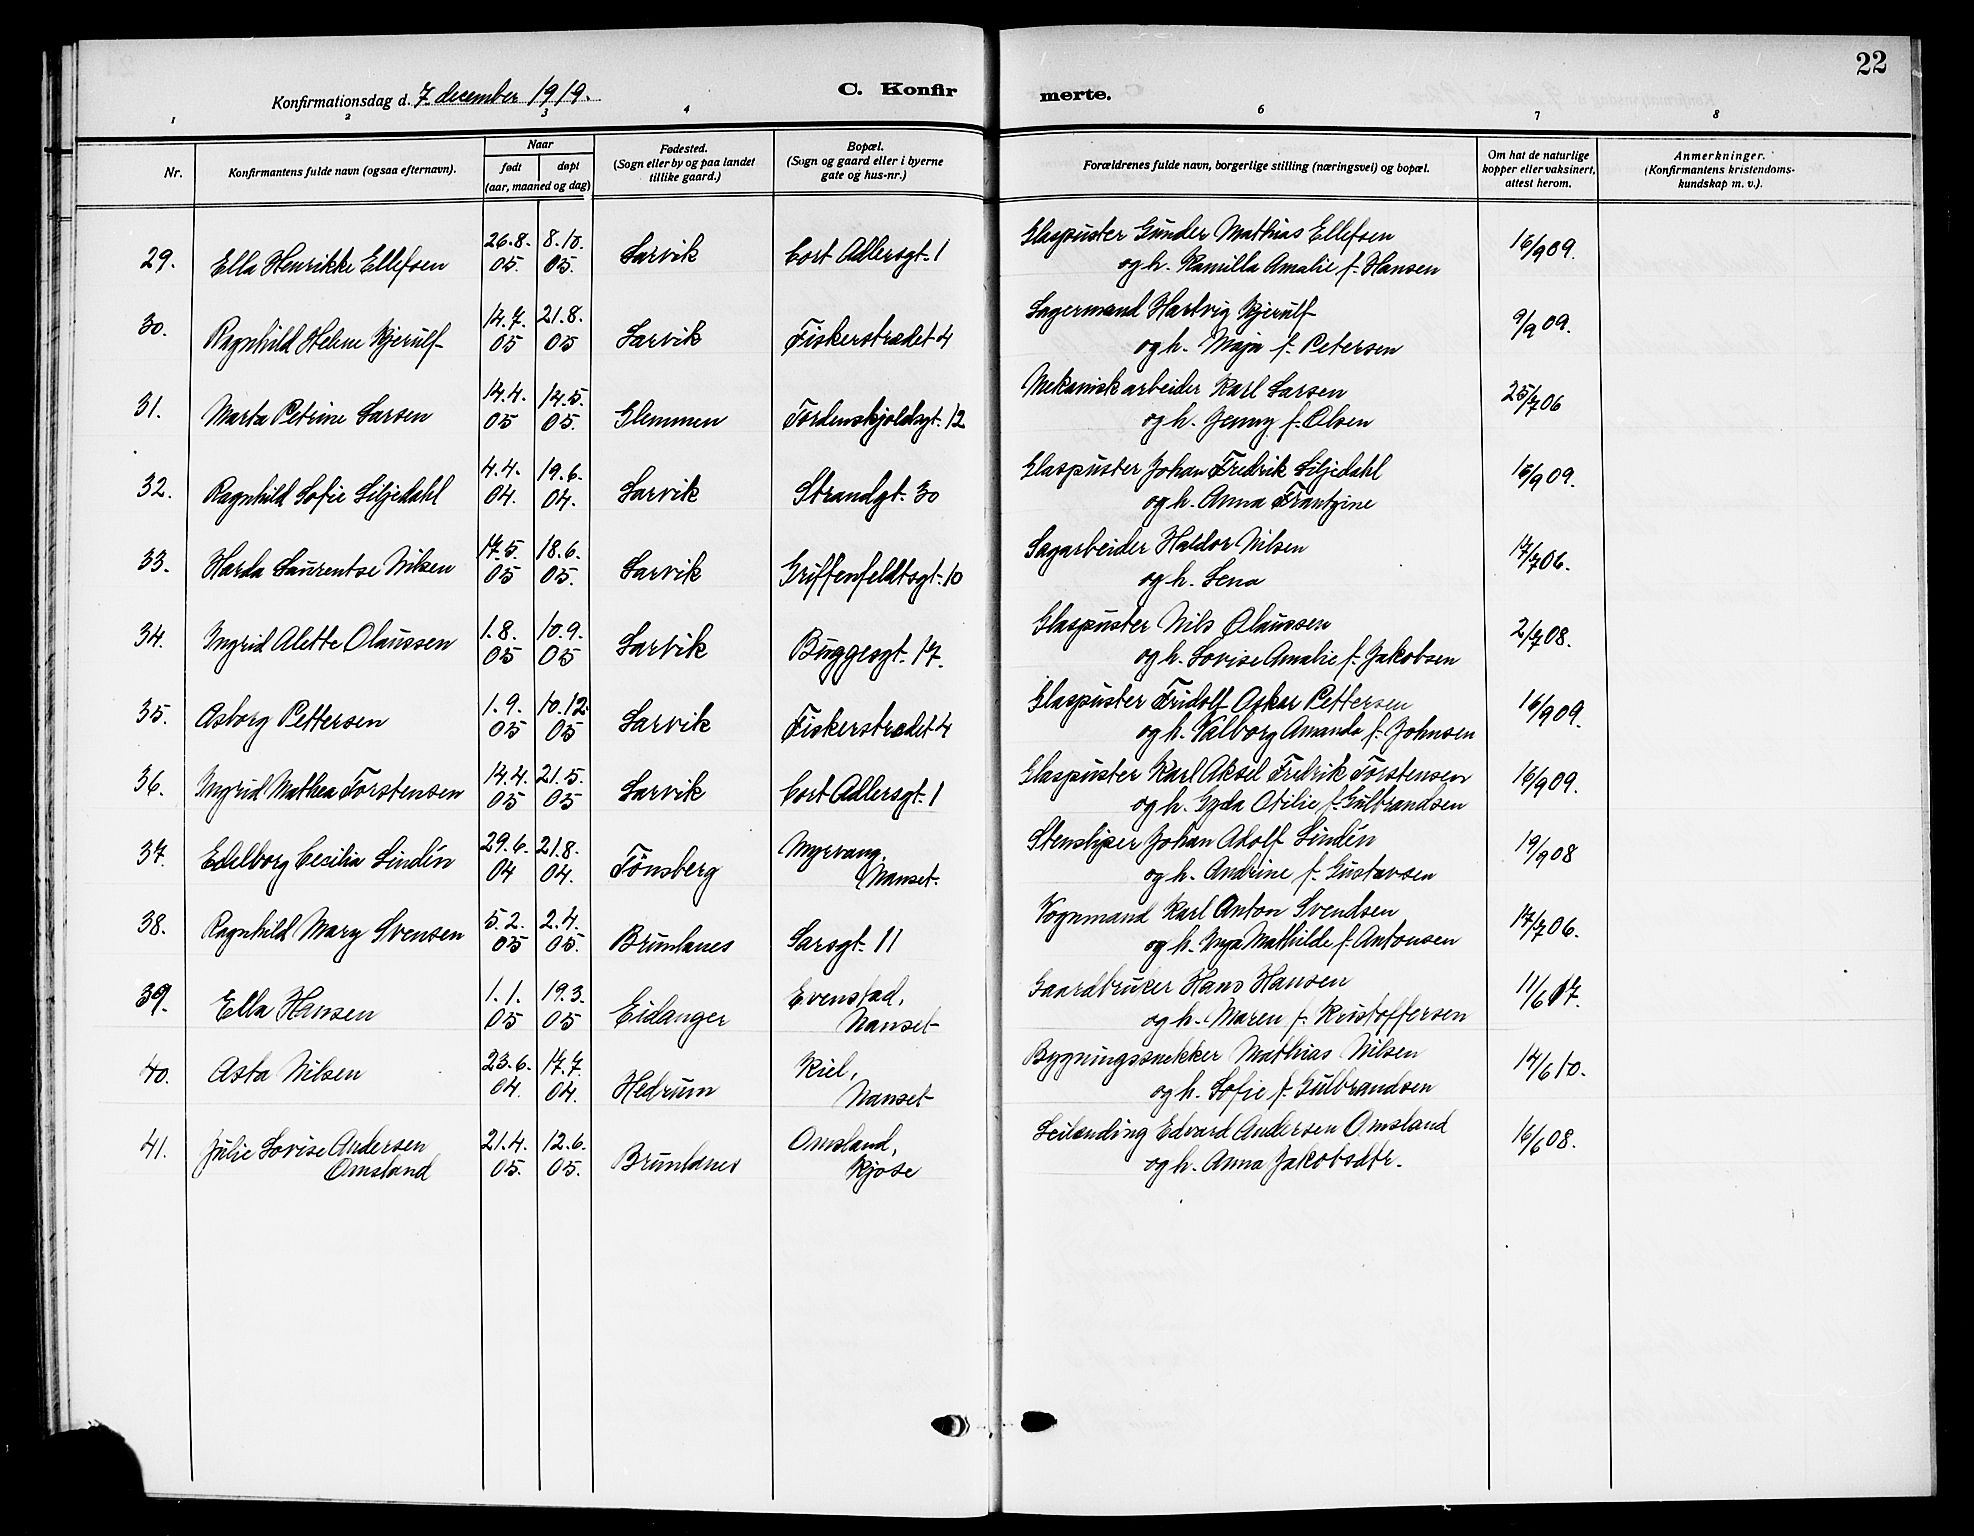 22
Konfirmationsdag d. 7 december 1919.
C. Konfirmerte.
1 2 3 4 6 7 8
Nr. | Konfirmantens fulde navn (ogsaa efternavn). | Naar født døpt (aar, maaned og dag) | Fødested. (Sogn eller by og paa landet tillike gaard.) | Bopæl. (Sogn og gaard eller i byerne gate og hus-nr.) | Forældrenes fulde navn, borgerlige stilling (næringsvei) og bopæl. | Om hat de naturlige kopper eller vaksinert, attest herom. | Anmerkninger. (Konfirmantens kristendomskundskap m. v.).
29. Ella Henrikke Ellefsen | 26.8.05. | 8.10.05. | Larvik | Cort Adlersgt. 1 | Glaspuster Gunder Mathias Ellefsen
og h. Kamilla Amalie f. Hansen | 16/9 09.
30. Ragnhild Helene Kjerulf | 14.7.05 | 21.8.05 | Larvik | Fiskerstrædet 4 | Lagermand Hartvig Kjerulf
og h. Maja f. Petersen | 9/9 09.
31. Marta Petrine Larsen | 14.4.05 | 14.5.05. | Glemmen | Tordenskjoldsgt. 12 | Mekanisk arbeider Karl Larsen
og h. Jenny f. Olsen | 25/7 06
32. Ragnhild Sofie Liljedahl | 4.4.04. | 19.6.04. | Larvik | Strandgt. 30 | Glaspuster Johan Fredrik Liljedahl
og h. Anna Frantzine | 16/9 09.
33. Harda Laurentse Nilsen | 17.5.05 | 18.6.05. | Larvik | Griffenfeldtsgt. 10 | Sagarbeider Haldor Nilsen
og h. Lena | 17/7 06.
34. Ingrid Alette Olaussen | 1.8.05 | 10.9.05 | Larvik | Buggesgt. 17. | Glaspuster Nils Olaussen
og h. Lovise Amalie f. Jakobsen | 2/7 08.
35. Asborg Pettersen | 1.9.05 | 10.12.05 | Larvik | Fiskerstrædet 4 | Glaspuster Fridolf Oskar Pettersen
og h. Valborg Amanda f. Johnsen | 16/9 09.
36. Ingrid Mathea Torstensen | 14.4.05 | 21.5.05 | Larvik | Cort Adlersgt. 1 | Glaspuster Karl Aksel Fredrik Torstensen
og h. Gyda Otilie f. Gulbrandsen | 16/9 09.
37. Edelborg Cecilia Lindén | 29.6.04 | 21.8.04. | Tønsberg | Myrvang, Nanset. | Stensliper Johan Adolf Lindén
og h. Andrine f. Gustavsen | 19/9 08
38. Ragnhild Mary Svensen | 5.2.05 | 2.4.05. | Brunlanes | Larsgt. 11 | Vognmand Karl Anton Svendsen
og h. Inga Mathilde f. Antonsen | 17/7 06.
39. Ella Hansen | 1.1.05 | 19.3.05 | Eidanger | Evenstad, Nanset | Gaardbruker Hans Hansen
og h. Maren f. Kristoffersen | 11/6 17.
40. Asta Nilsen | 23.6.04. | 17.7.04. | Hedrum | Kiel, Nanset | Bygningssnekker Mathias Nilsen
og h. Sofie f. Gulbrandsen | 14/6 10.
41. Julie Lovise Andersen Omsland | 21.4.05. | 12.6.05. | Brunlanes | Omsland, Kjose | Leilending Edvard Andersen Omsland
og h. Anna Jakobsdtr. | 16/6 08.